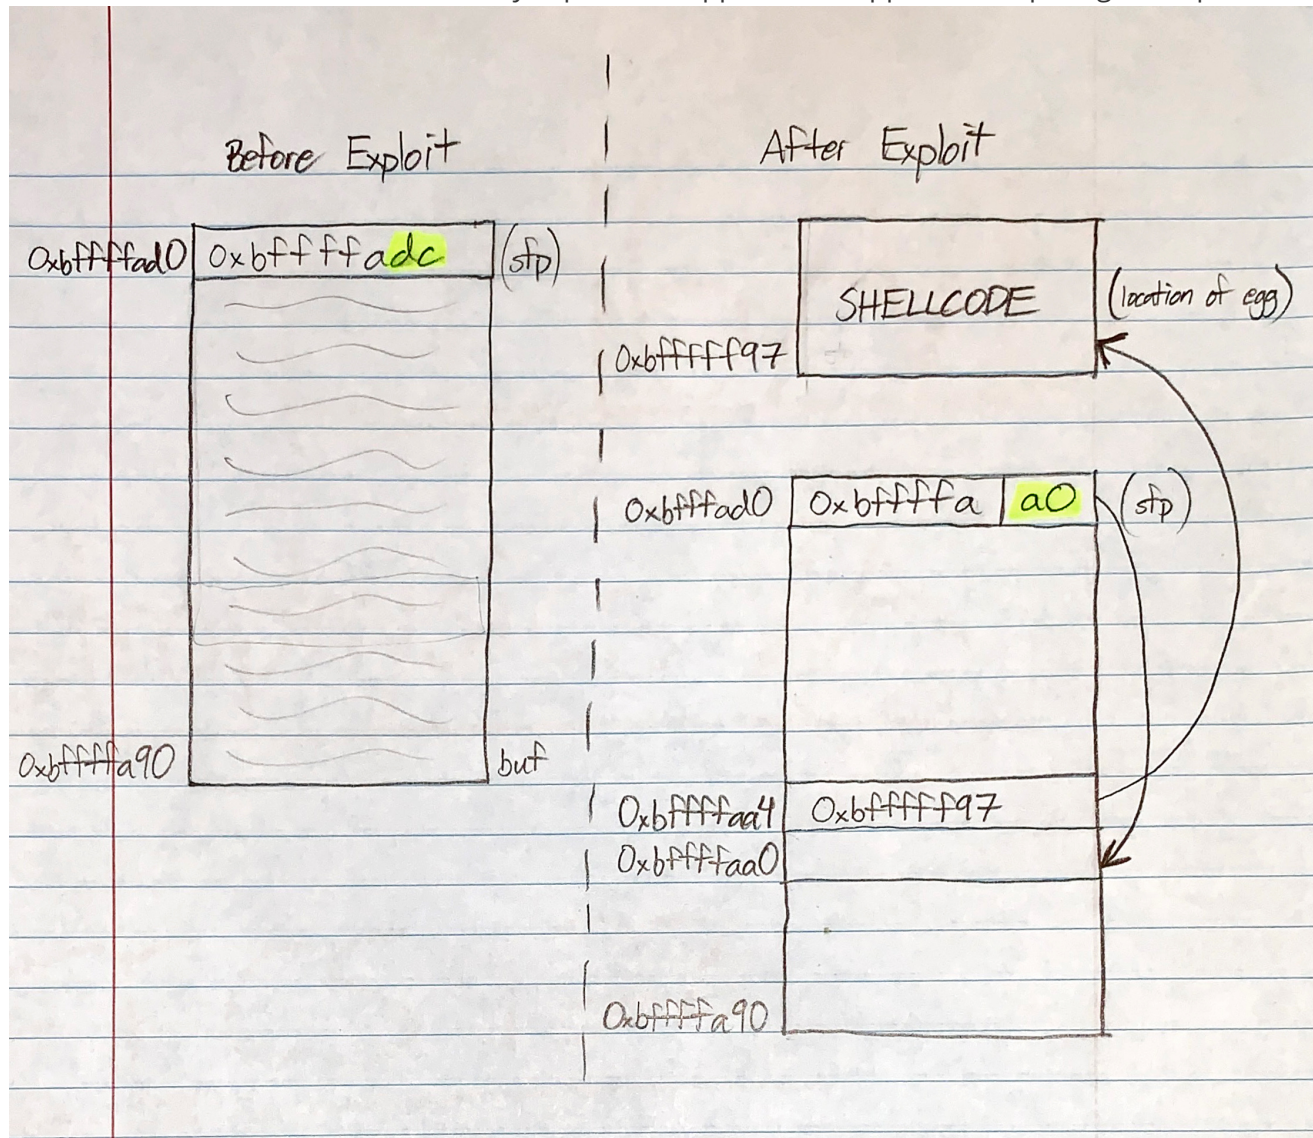 Before Exploit
0xbffffad0 0xbffffadc (sfp)
0xbffffa90 buf
After Exploit
SHELLCODE (location of egg)
0xbfffff97
0xbfffad0 0xbffffa a0 (sfp)
0xbffffaa4 0xbfffff97
0xbffffaa0
0xbffffa90